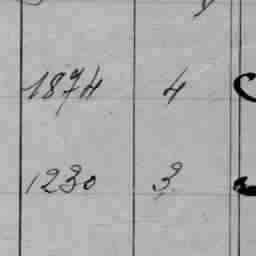 1874 4
1230 3